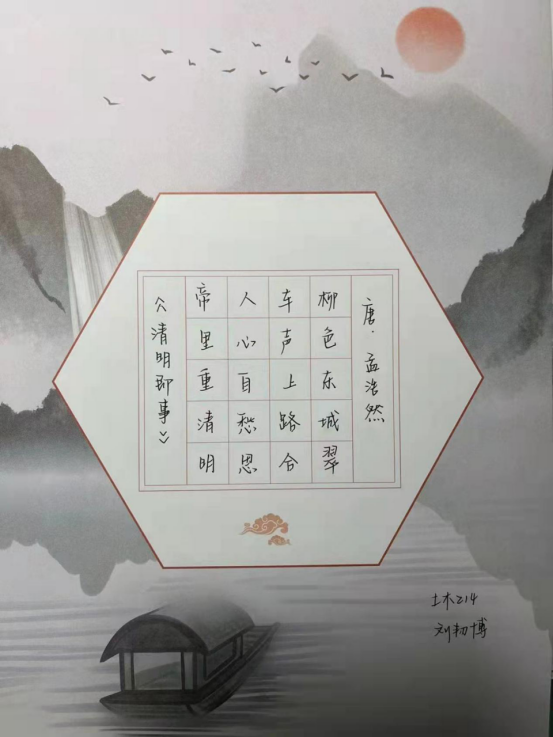 《清明即事》
帝里重清明
人心自愁思
车声上路合
柳色东城翠
唐·孟浩然
土木214
刘博